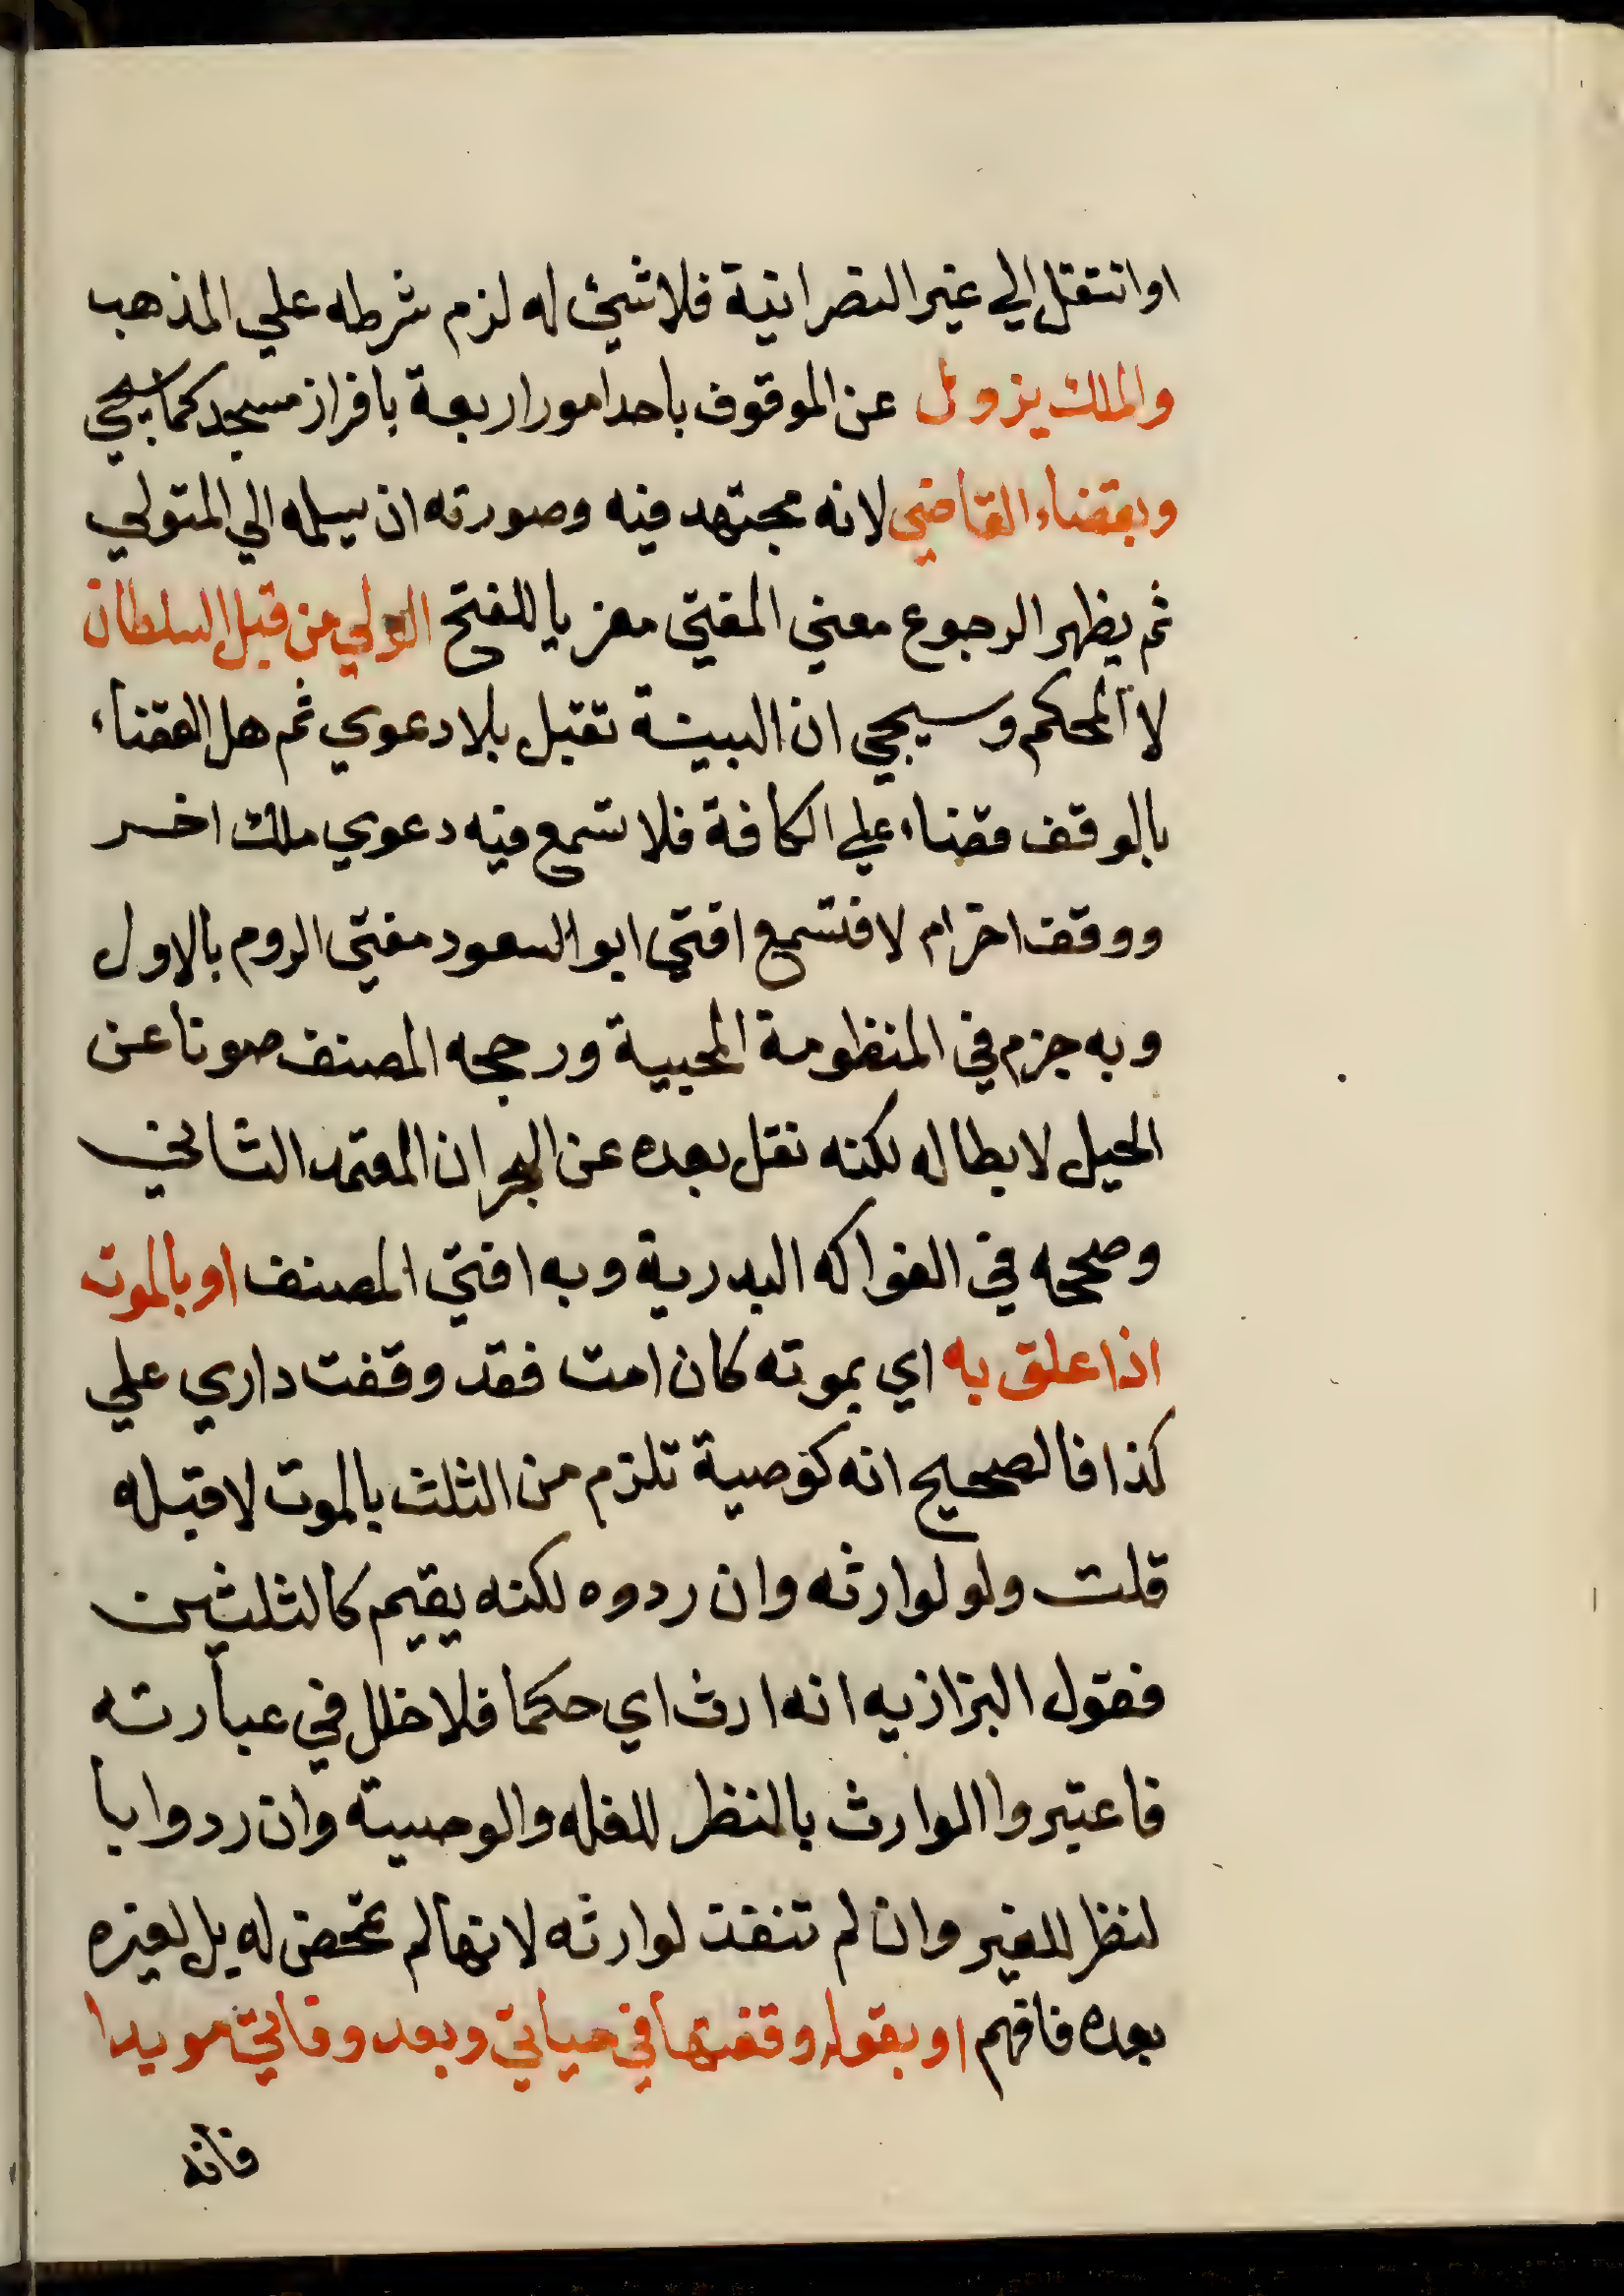 او انتقل الي غير النصرانية فلا شيئ له لزم شرطه علي المذهب
والملك يزول عن الموقوف باحد امور اربعة بافراز مسجد كما سيجي
وبقضاء القاضي لانه مجتهد فيه وصورته ان يسلمه الي المتولي
ثم يظهر الرجوع معني المفتي معزيا للفتح المولي من قبل السلطان
لا المحكم وسيجي ان البينة تقبل بلا دعوي ثم هل القضاء
بالوقف قضاء علي الكافة فلا تسمع فيه دعوي ملك اخر
ووقف اخر ام لا فتسمع افتي ابو السعود مفتي الروم بالاول
وبه جزم في المنظومة المحبية ورجحه المصنف صونا عن
الحيل لابطاله لكنه نقل بعده عن البحر ان المعتمد الثاني
وصححه في الفواكه البدرية وبه افتي المصنف او بالموت
اذا علق به اي بموته كان امت فقد وقفت داري علي
كذا فالصحيح انه كوصية تلزم من الثلث بالموت لا قبله
قلت ولو لوارثه وان ردوه لكنه يقيم كالثلثين
فقول البزازيه انه ارث اي حكما فلا خلل في عبارته
فاعتبروا الوارث بالنظر للغله والوصية وان ردوا با
لنظر للغير وان لم تنفذ لوارثه لانها لم تمحض له بل لغيره
بعده فافهم او بقوله وقفتها في حياتي وبعد وفاتي موبدا
فانه